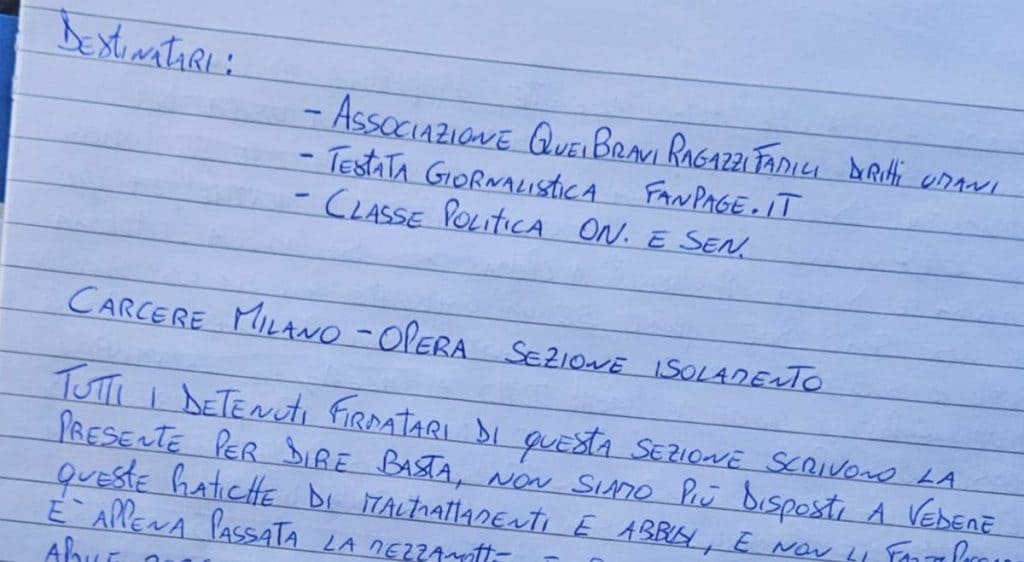 DESTINATARI:
- ASSOCIAZIONE QUEI BRAVI RAGAZZI FAMILI DIRITTI UMANI
- TESTATA GIORNALISTICA FANPAGE.IT
- CLASSE POLITICA ON. E SEN.
CARCERE MILANO - OPERA SEZIONE ISOLAMENTO
TUTTI I DETENUTI FIRMATARI DI QUESTA SEZIONE SCRIVONO LA
PRESENTE PER DIRE BASTA, NON SIAMO PIÙ DISPOSTI A VEDERE
QUESTE PRATICHE DI MALTRATTAMENTI E ABBUSI, E NON LI
E' APPENA PASSATA LA MEZZANOTTE
APRILE